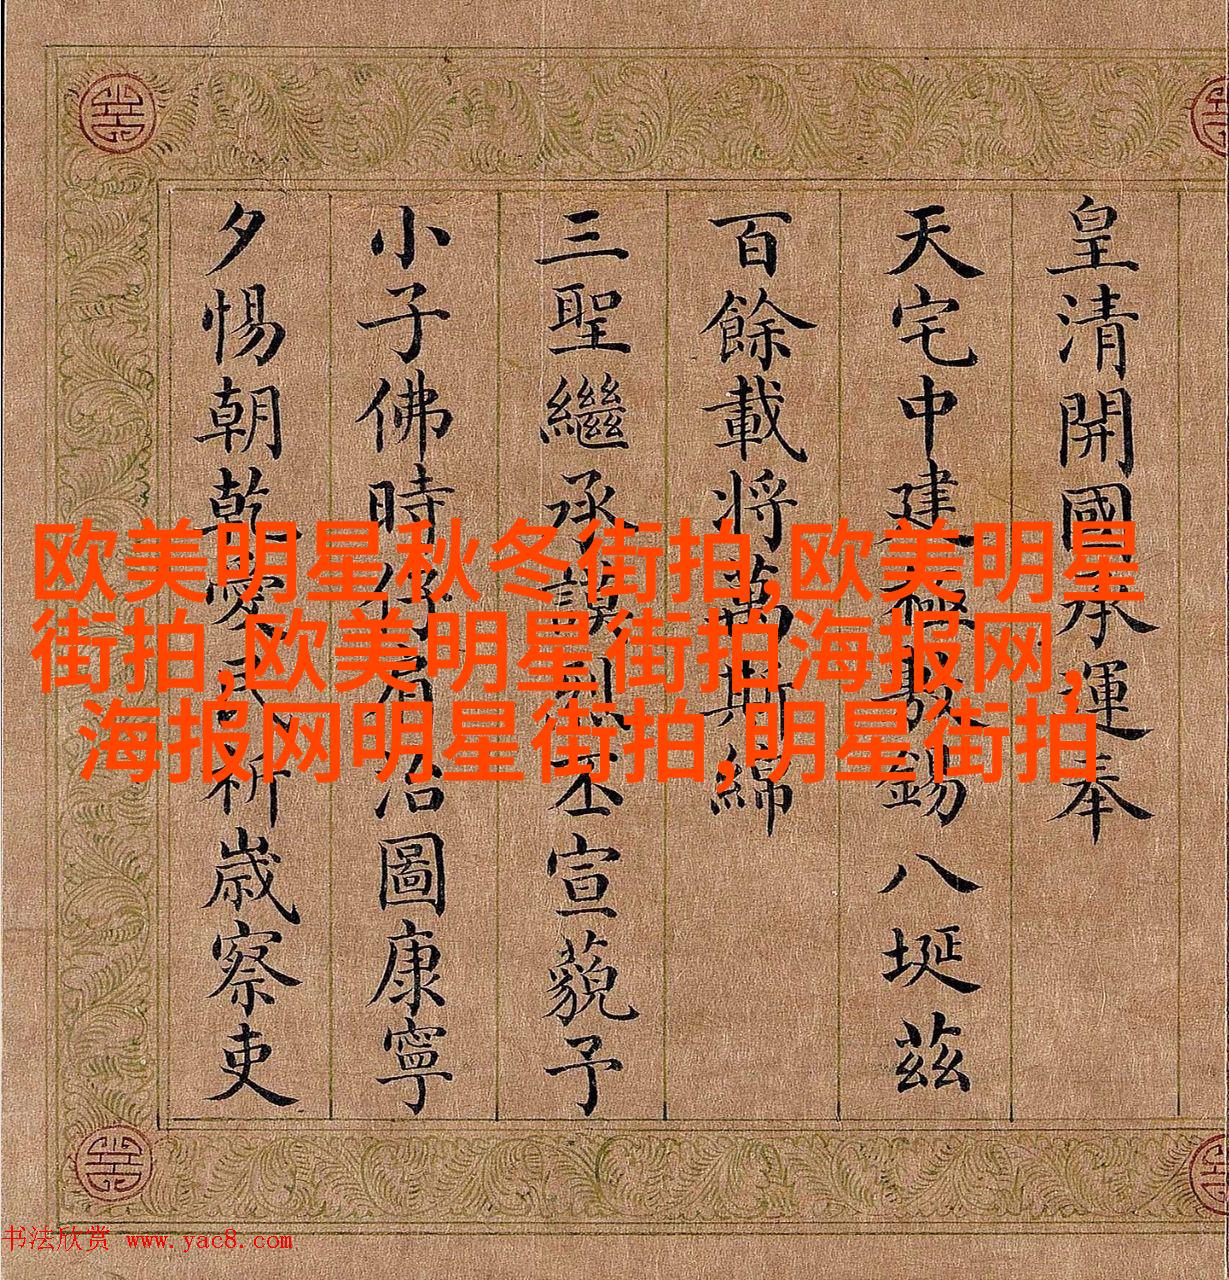 皇清開國承運奉
天宅中建極敷錫八埏茲
百餘載將萬斯綿
三聖繼承謨烈丕宣藐予
小子佛時仔肩治圖康寧
夕惕朝乾愛民祈歲察吏
欧美明星秋冬街拍,欧美明星
街拍,欧美明星街拍海报网,
海报网明星街拍,明星街拍
书法欣赏 www.yac8.com